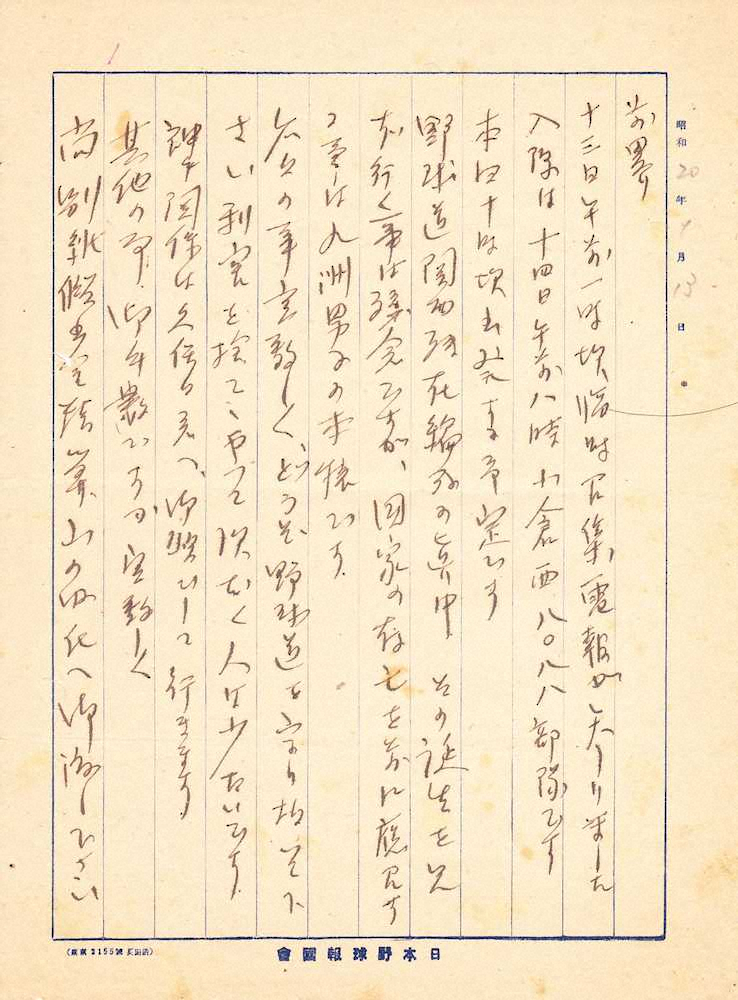 昭和20年1月13日
前畧
十三日午前一時頃臨時召集電報が天りました
入隊は十四日午前八時小倉西八〇八八部隊です
本日十時頃出発する予定です
野球道関西殘在編成の真中 その誕生を見
ず行く事は残念ですが、国家の存亡を前に應召す
る事は九洲男子の本懐です。
今后の事宜敷く、どうぞ野球道を守り抜いて下
さい 利害を捨てゝやつて頂く人は少ないです。
神関係は久保田君へ、御願ひして行きます
其他の事、御年嵩ですが宜敷く
尚別紙 を 山の内氏へ御渡し下さい
日本野球報國會